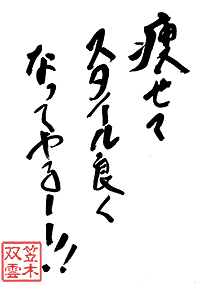 痩せて
スタイル良く
なってやるーー!!
笠木
双雲